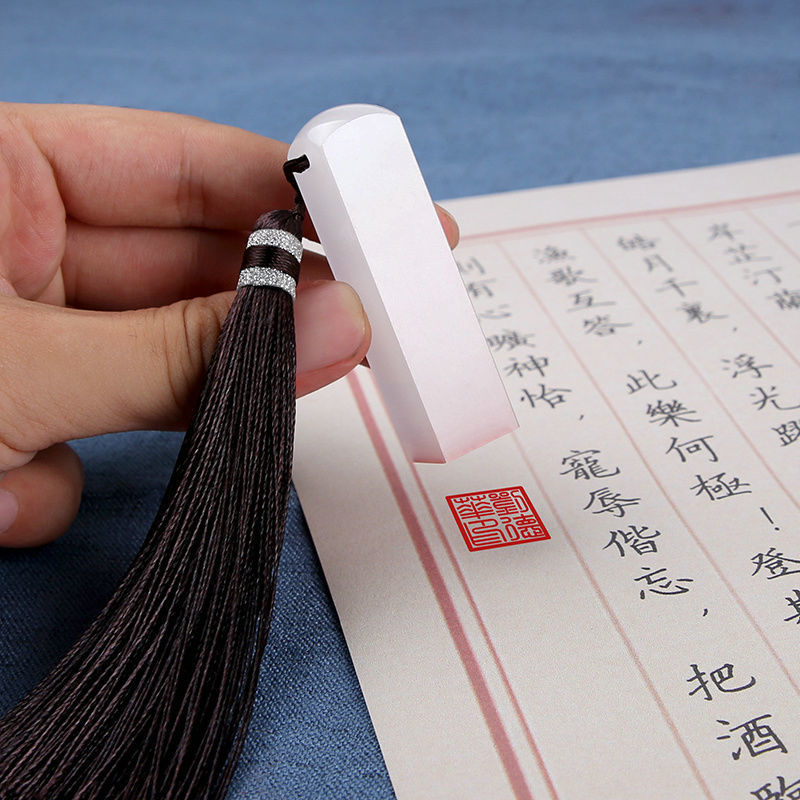 岸芷汀蘭
皓月千裏，浮光
漁歌互答，此樂何極！登斯
則有心曠神怡，寵辱偕忘，把酒臨
劉德華印